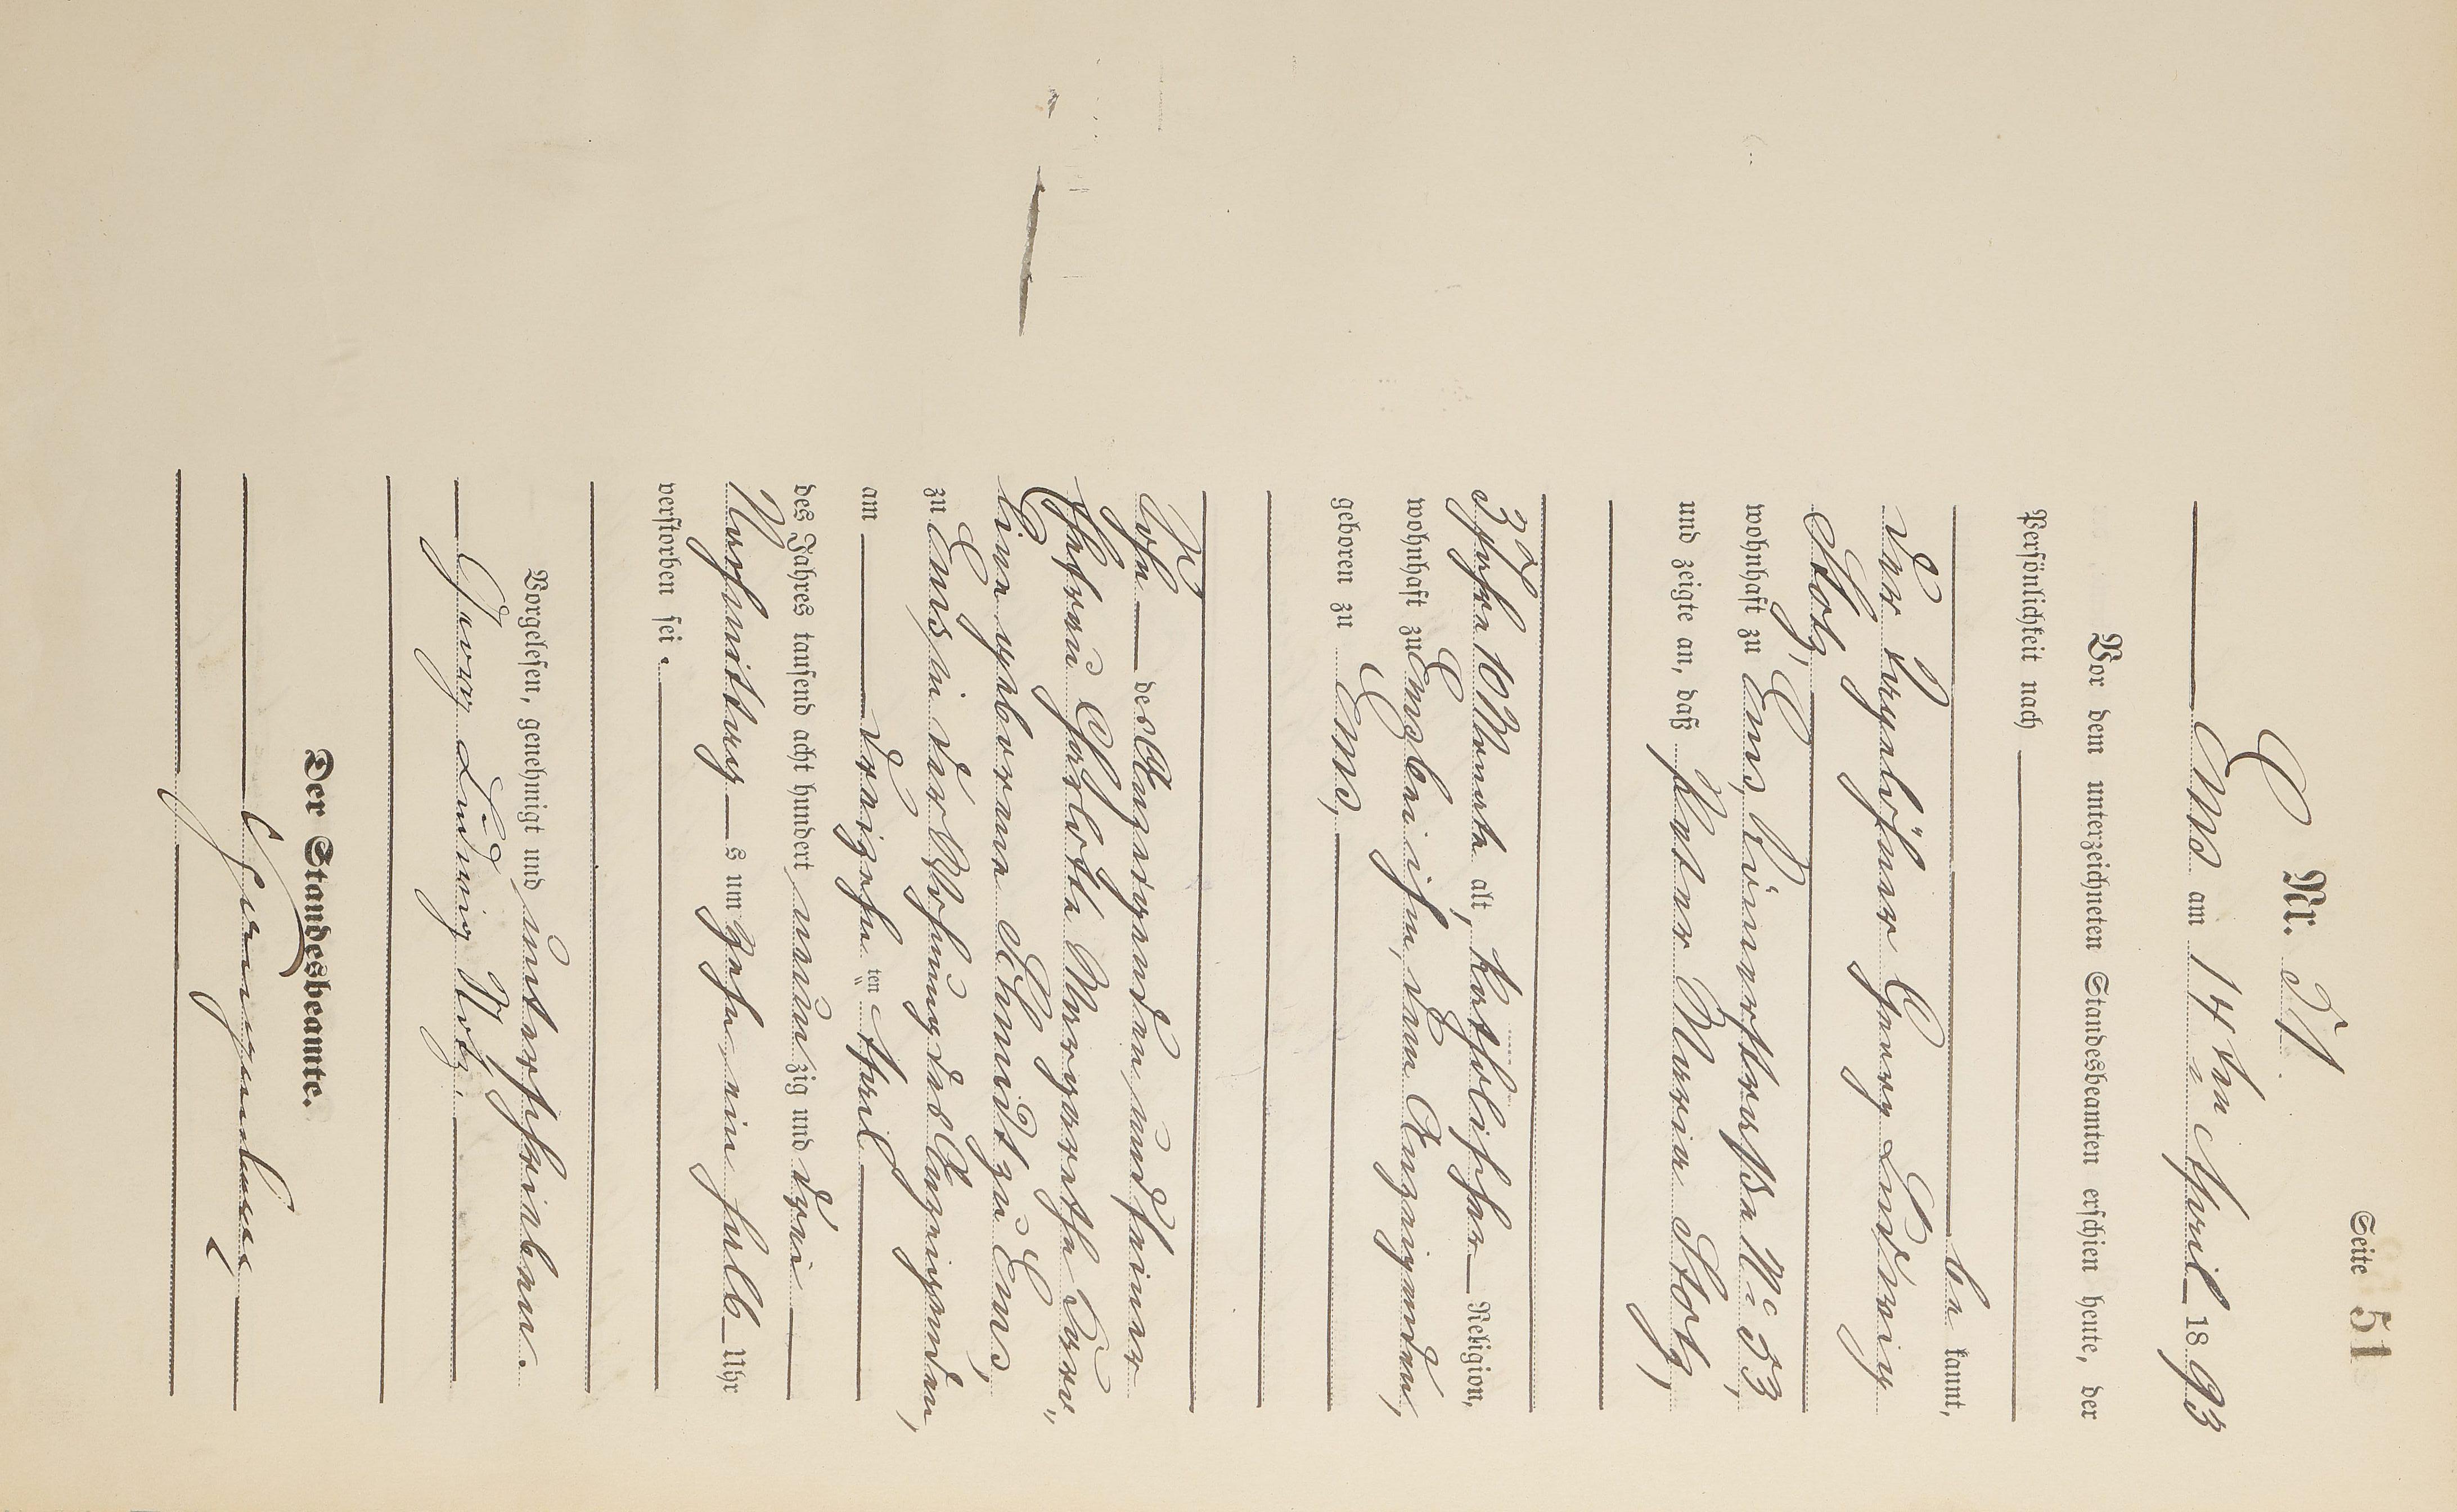 Seite 51
C
Nr. 51
Ems am 14ten April 1893
Vor dem unterzeichneten Standesbeamten erschien heute, der
Persönlichkeit nach
be kannt,
der Tagelöhner Georg Ludwig
Stotz,
wohnhaft zu Ems, Römerstraße No 53,
und zeigte an, daß Peter Maria Stotz,
3 Jahre 10 Monate alt, katholischer Religion,
wohnhaft zu Ems bei ihm, dem Anzeigenden,
geboren zu Ems,
Sohn des Anzeigenden und seiner
Ehefrau Charlotte Margarethe Caro„
line geborene Schmidt zu Ems,
zu Ems in der Wohnung des Anzeigenden,
am dreizehn ten April
des Jahres tausend acht hundert neunzig und drei
Nachmittag s um zehn ein halb Uhr
verstorben sei.
Vorgelesen, genehmigt und unterschrieben.
Georg Ludwig Stotz.
Der Standesbeamte.